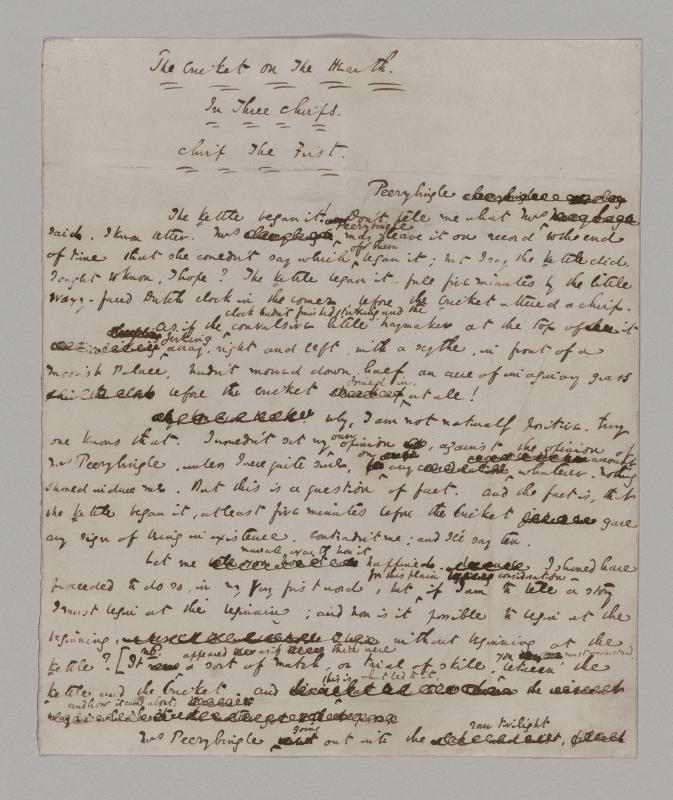 The Cricket on The Hearth.
In Three Chirps.
Chirp The First.
Peerybingle
The kettle began it! Don't tell me what Mrs
said. I know better. Mrs Peerybingle may leave it on record to the end
of time that she couldn't say which of them began it; but I say the kettle did.
I ought to know, I hope? The kettle began it full five minutes by the little
waxy-faced Dutch clock in the corner, before the Cricket uttered a chirp.
clock hadn't finished striking, and the
As if the convulsive little haymaker at the top of it
jerking away, right and left, with a scythe, in front of a
Moorish Palace, hadn't mowed down half an acre of imaginary grass
before the Cricket joined in at all!
Why, I am not naturally positive. Every
one knows that. I wouldn't set my own opinion, against the opinion of
Mrs Peerybingle, unless I were quite sure, on any account whatever. Nothing
should induce me. But this is a question of fact. And the fact is, that
the kettle began it, at least five minutes before the Cricket gave
any sign of being in existence. Contradict me; and I'll say ten.
Let me narrate exactly how it happened. I should have
for this plain consideration
proceeded to do so, in my very first word, but, if I am to tell a story
I must begin at the beginning; and how is it possible to begin at the
beginning, without beginning at the
kettle? It appeared as if there were a sort of match, or trial of skill, you must understand between the
kettle and the Cricket. And this is what led to it, the
and how it came about.
Mrs Peerybingle going out into the raw twilight